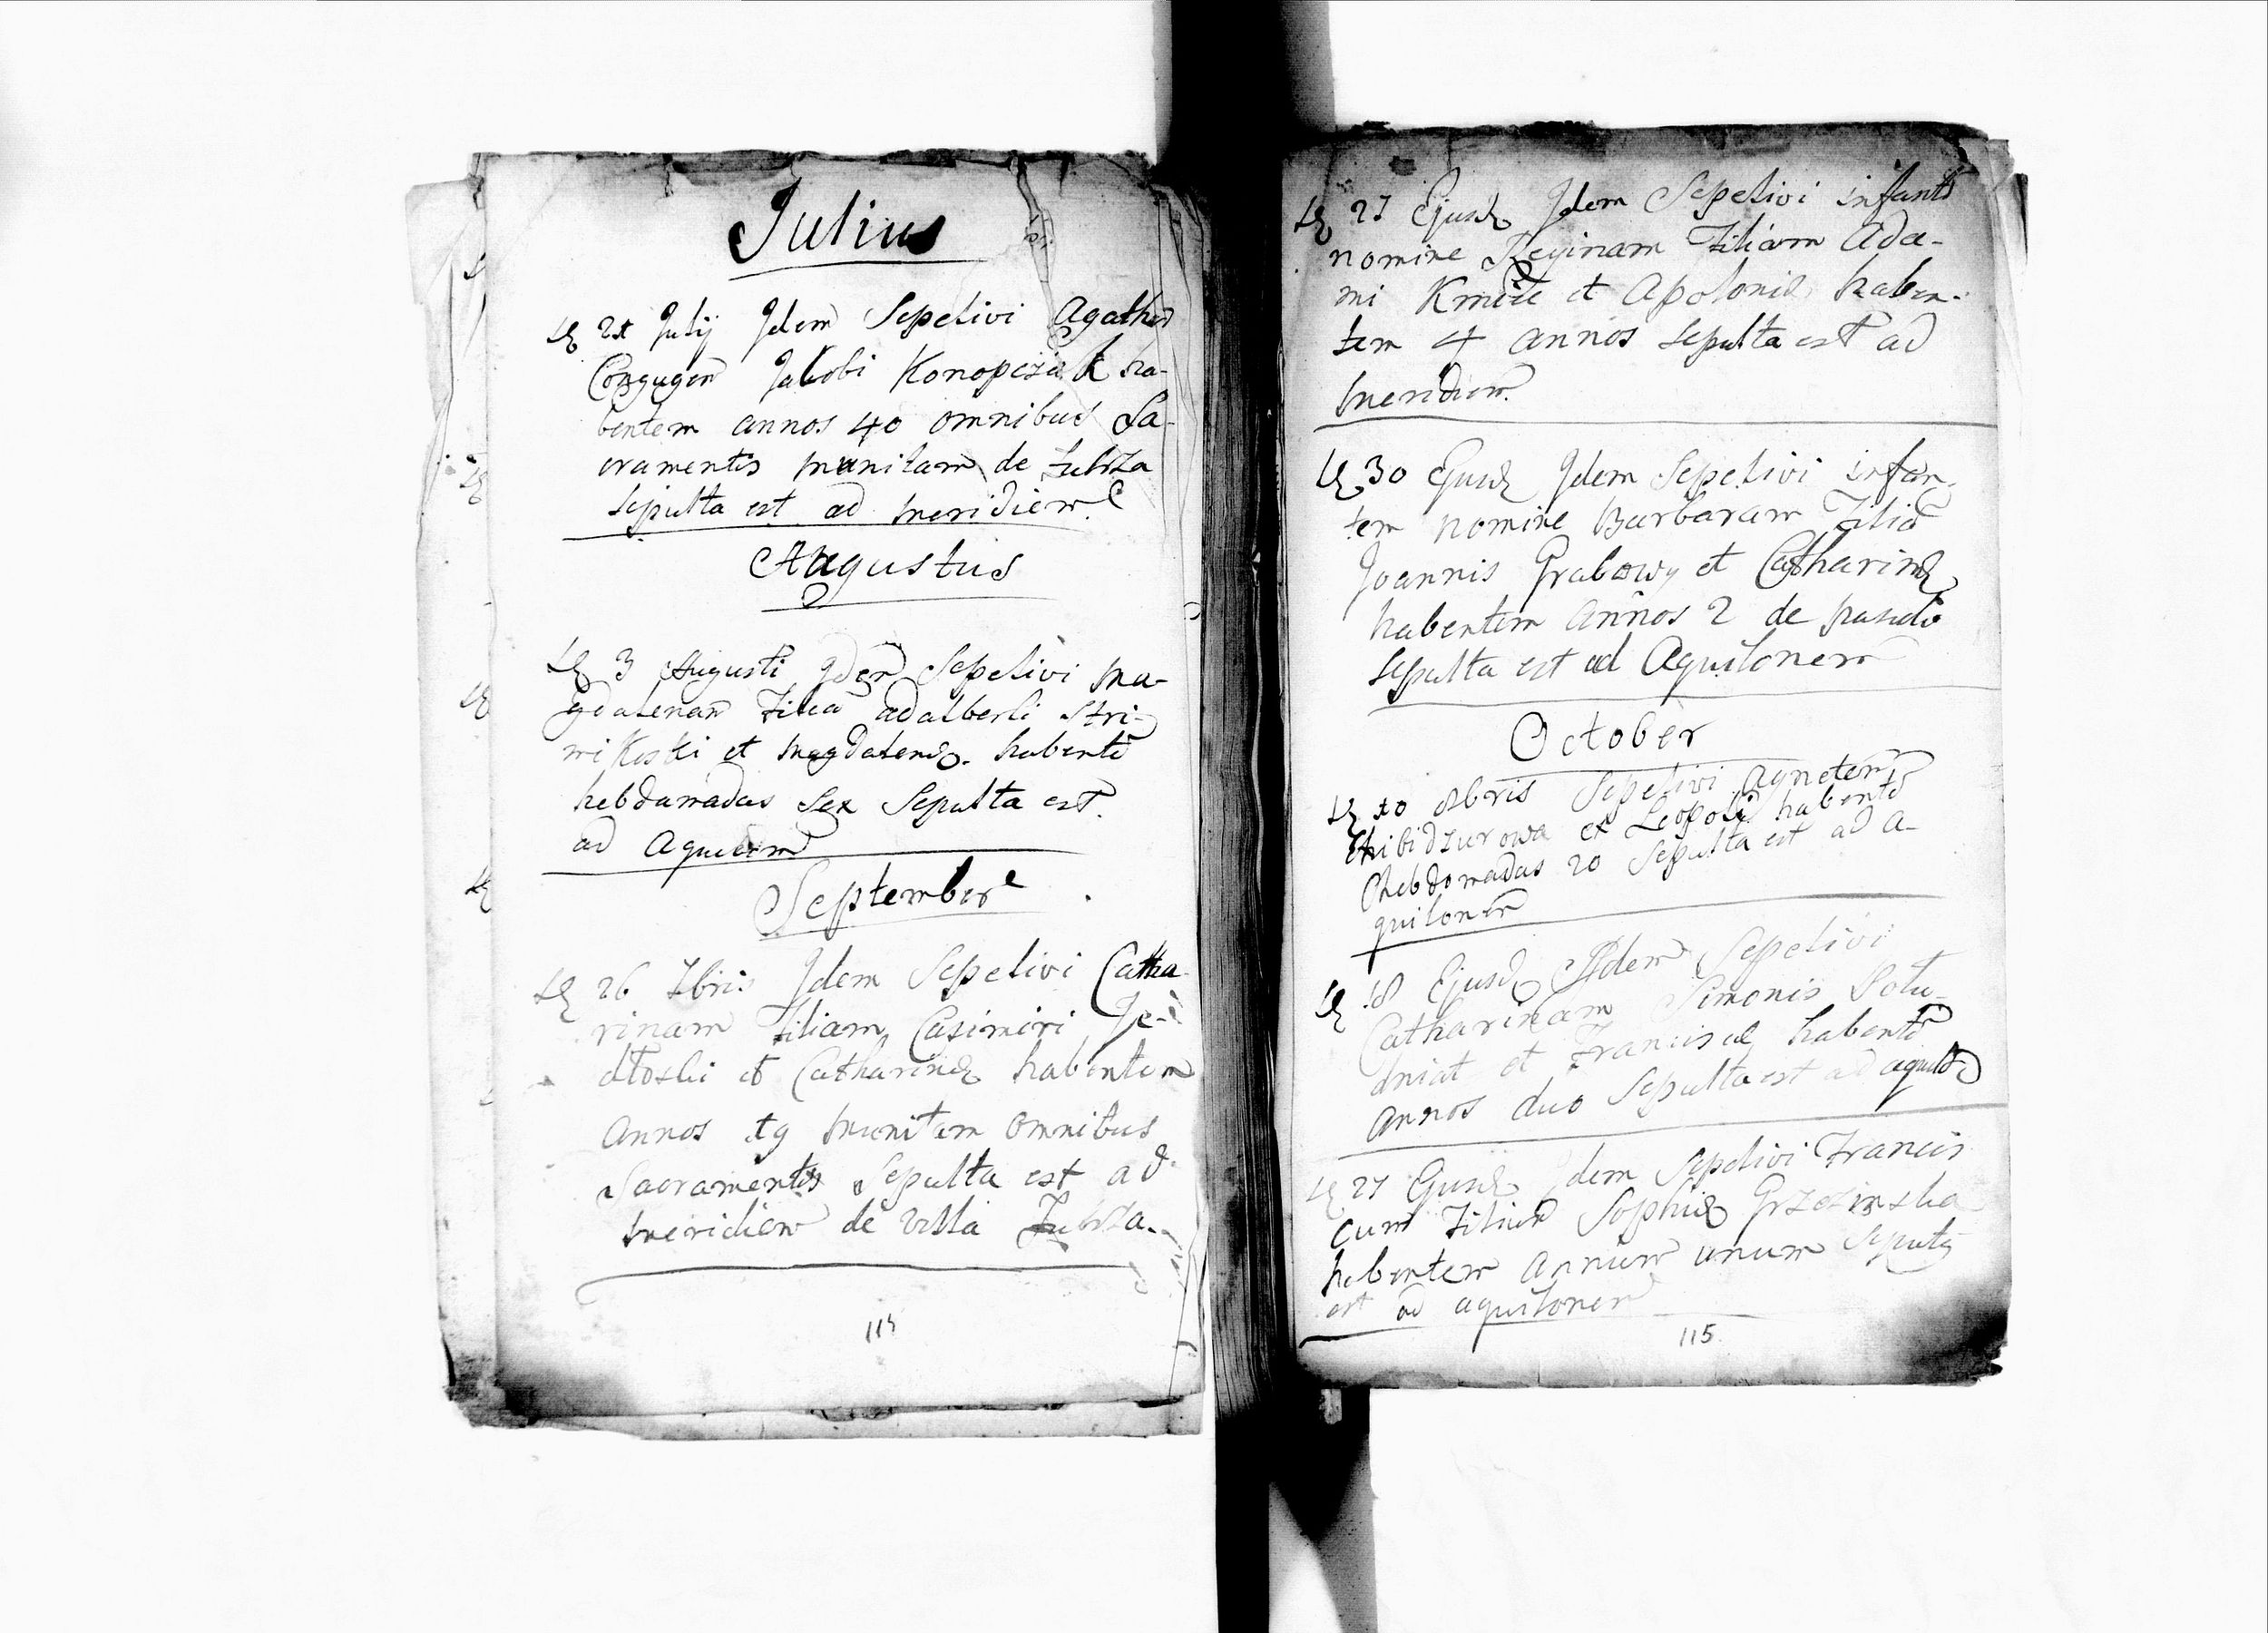 Julius
21 Julij Idem Sepelivi Agatham
Conjugem Jakobi Konopczak ha-
bentem annos 40 omnibus Sa-
cramentis munitam de
Sepulta est ad meridiem
Augustus
3 Augusti Idem Sepelivi Ma-
gdalenam Filia adalberti Stri-
mikoski et Magdalenæ habente
hebdamadas Sex Sepulta est
ad
September
26 7bris Idem Sepelivi Catha-
rinam Filiam Casimiri Je-
et Catharinæ habentem
Annos 19 munitam Omnibus
Sacramentis Sepulta est ad
meridiem de villa
27 Ejusd Idem Sepelivi infante
nomine Reginam Filiam Ada-
mi Kmiec et Apoloniæ haben-
tem 4 annos Sepulta est ad
meridiem
30 Ejusd Idem Sepelivi infan-
tem nomine Barbaram Filia
Joannis Grabowy et Catharinæ
habentem Annos 2 de
Sepulta est ad Aquilonem
October
10 8bris Sepelivi Agnetem
et habente
hebdomadas 20 Sepulta est ad A-
quilonem
18 Ejusd Idem Sepelivi
Catharinam Simonis Solu-
dniak et Franciscæ habente
annos duo Sepulta est ad aquilo
27 Ejusd Idem Sepelivi Francis
cum Filium Sophiæ
habentem Annum unum Sepult9
est ad aquilonem
115